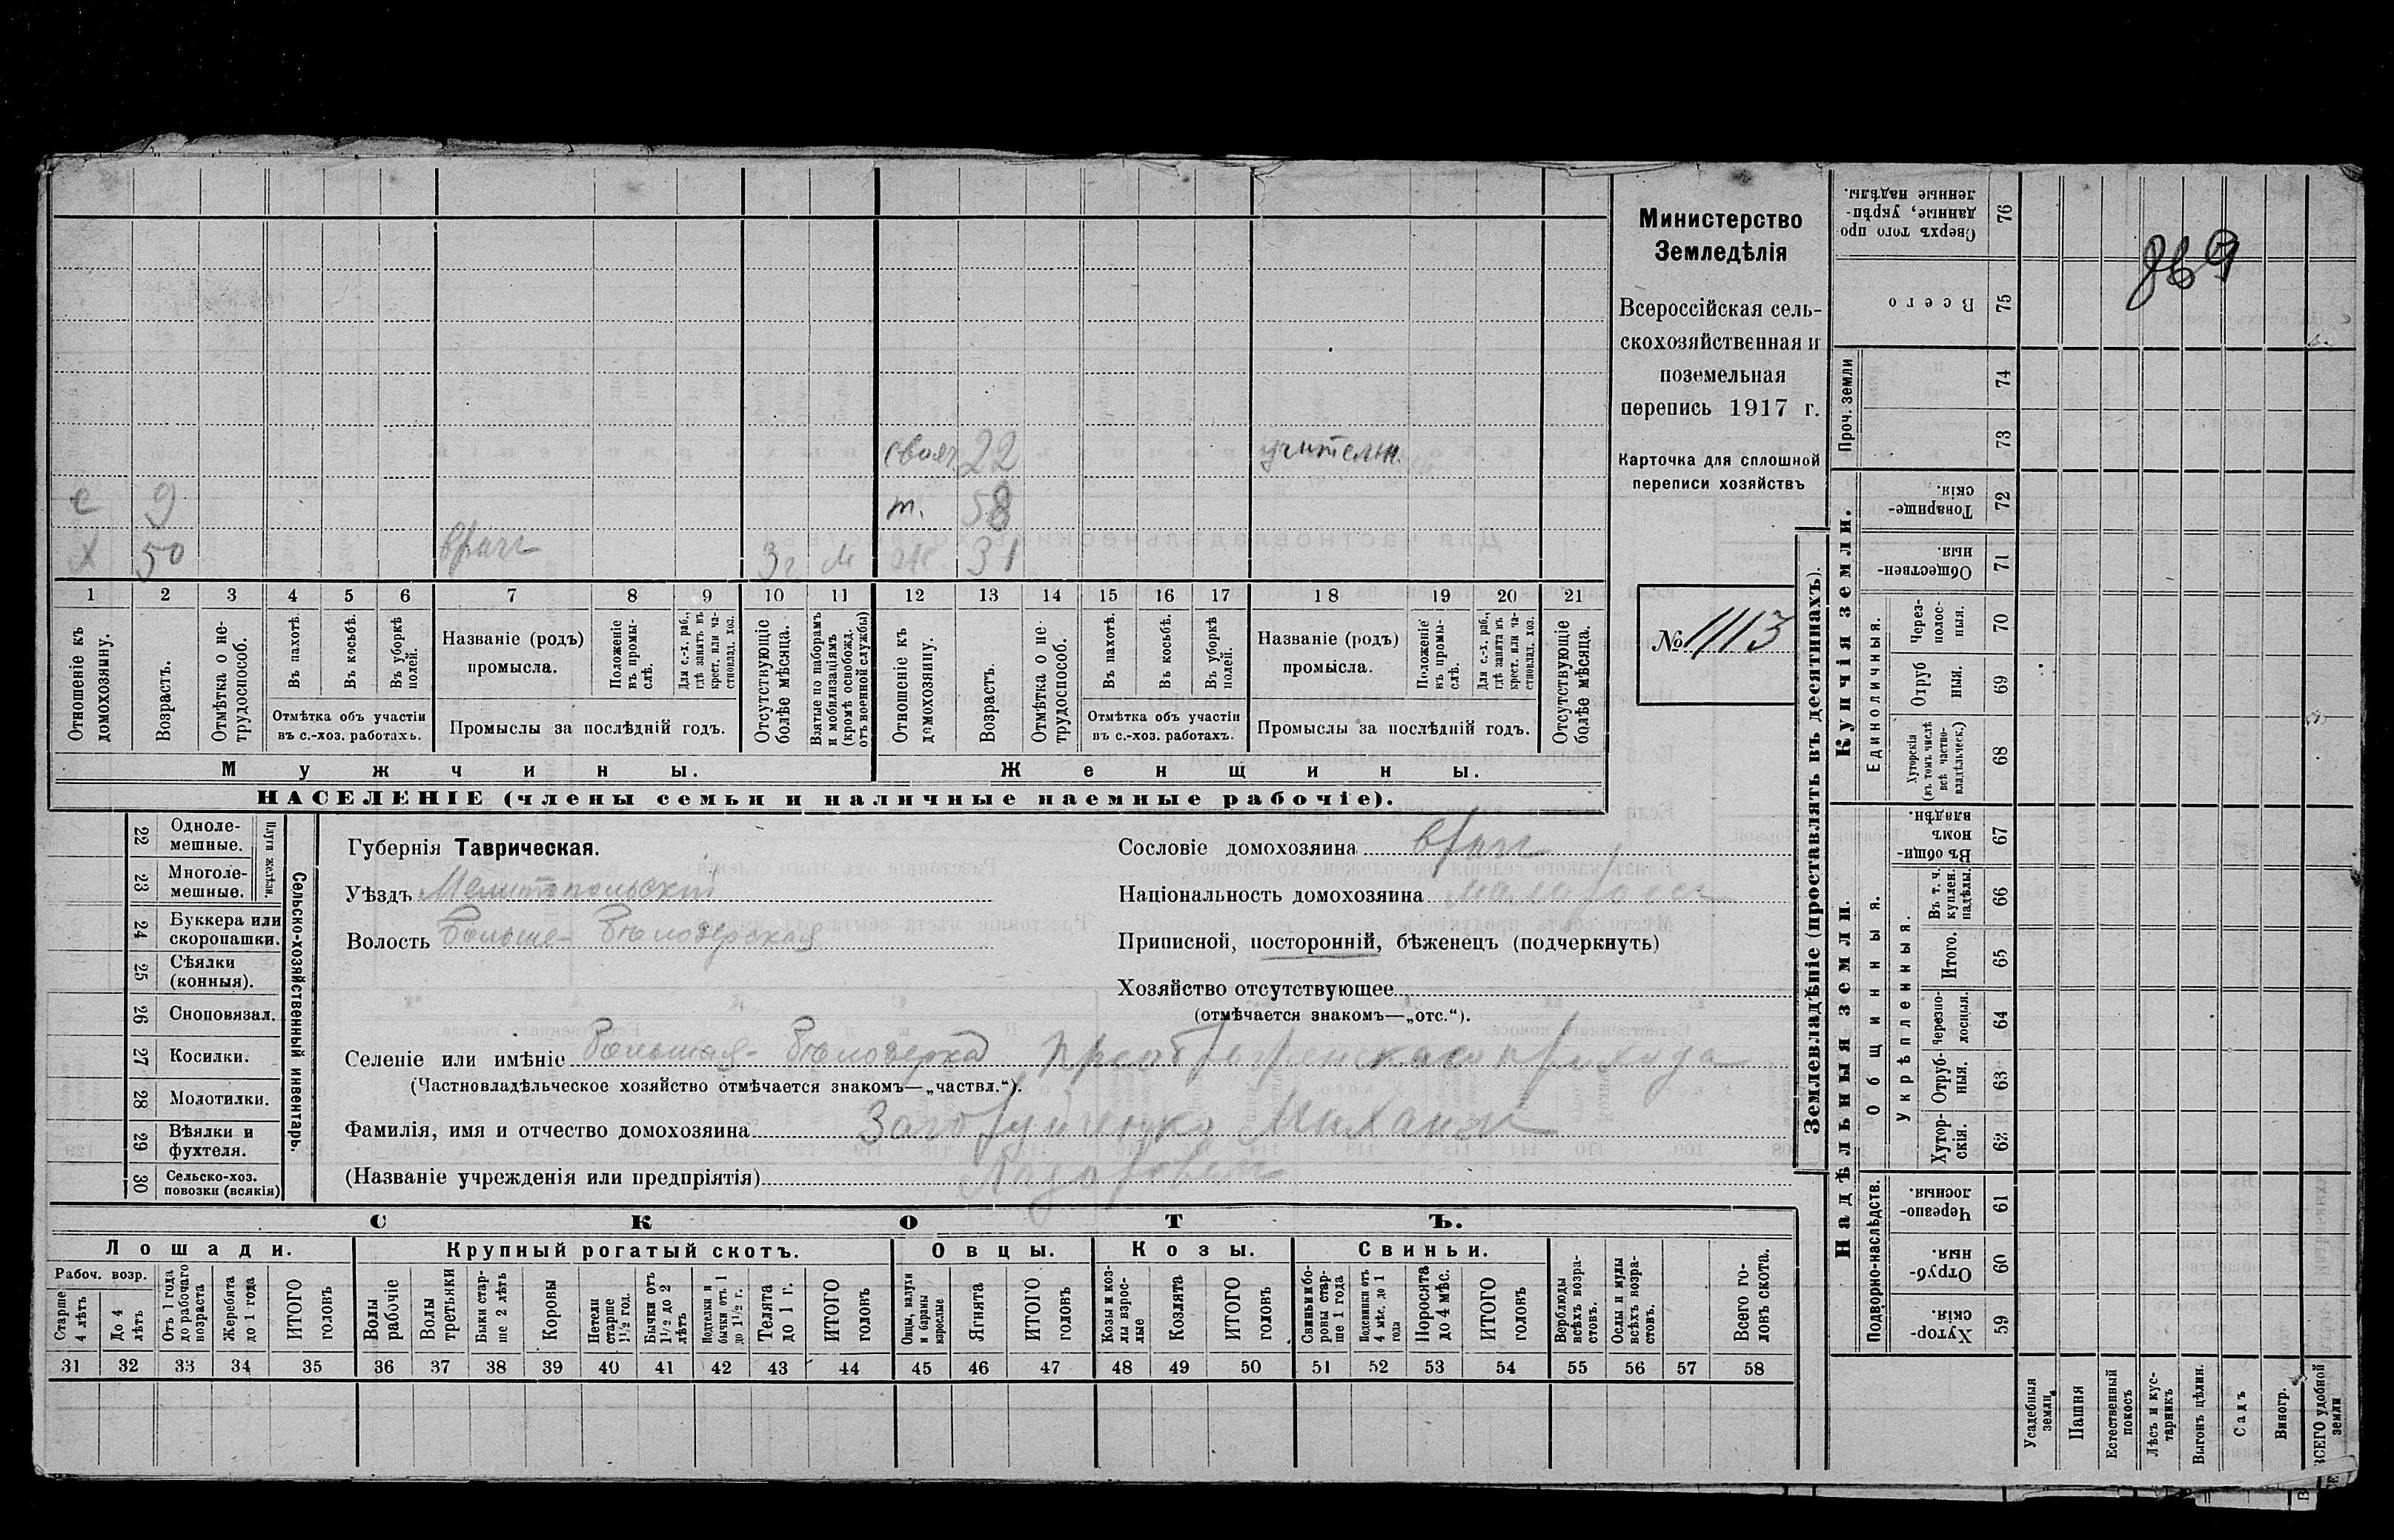 свояч. 22 учительн.
с 9 т. 58
х 50 врачъ 3 г. м ж. 31
1 2 3 4 5 6 7 8 9 10 11 12 13 14 15 16 17 18 19 20 21
Отношеніе къ домохозяину.
Возрастъ.
Отмѣтка о не-трудоспособ.
Въ пахотѣ.
Въ косьбѣ.
Въ уборкѣ полей.
Отмѣтка объ участіи
въ с.-хоз. работахъ.
Названіе (родъ)
промысла.
Положеніе въ промы-слѣ.
Для с.-х. раб., гдѣ занятъ въ крест. или ча-стновлад. хоз.
Промыслы за послѣдній годъ.
Отсутствующіе болѣе мѣсяца.
Взятые по наборамъ и мобилизаціямъ (кромѣ освобожд. отъ военной службы)
Отношеніе къ домохозяину.
Возрастъ.
Отмѣтка о не-трудоспособ.
Въ пахотѣ.
Въ косьбѣ.
Въ уборкѣ полей.
Отмѣтка объ участіи
въ с.-хоз. работахъ.
Названіе (родъ)
промысла.
Положеніе въ промы-слѣ.
Для с.-х. раб., гдѣ занята въ крест. или ча-стновлад. хоз.
Промыслы за послѣдній годъ.
Отсутствующіе болѣе мѣсяца.
Мужчины.
Женщины.
НАСЕЛЕНІЕ (члены семьи и наличные наемные рабочіе).
Министерство
Земледѣлія
Всероссійская сель-
скохозяйственная и
поземельная
перепись 1917 г.
Карточка для сплошной
переписи хозяйствъ
№ 1113
22 Однолемешные.
23 Многолемешные.
Плуги желѣзн.
24 Буккера или скоропашки.
25 Сѣялки (конныя).
26 Сноповязал.
27 Косилки.
28 Молотилки.
29 Вѣялки и фухтеля.
30 Сельско-хоз. повозки (всякія)
Сельско-хозяйственный инвентарь.
Губернія Таврическая.
Уѣздъ Мелитопольскій
Волость Больше-Бѣлозерская
Сословіе домохозяина врачъ
Національность домохозяина малоросс
Приписной, посторонній, бѣженецъ (подчеркнуть)
Хозяйство отсутствующее
(отмѣчается знакомъ—„отс.“).
Селеніе или имѣніе Большая-Бѣлозерка Преображенскаго прихода
(Частновладѣльческое хозяйство отмѣчается знакомъ—„частвл.“).
Фамилія, имя и отчество домохозяина Михаилъ
(Названіе учрежденія или предпріятія) Лазаровичъ
СКОТЪ.
Лошади. Крупный рогатый скотъ. Овцы. Козы. Свиньи.
Рабоч. возр.
Старше 4 лѣтъ
До 4 лѣтъ
Отъ 1 года до рабочаго возраста
Жеребята до 1 года
ИТОГО головъ
Волы рабочіе
Волы третьяки
Быки стар-ше 2 лѣтъ
Коровы
Нетели старше 1½ год.
Бычки отъ 1½ до 2 лѣтъ
Подтелки и бычки отъ 1 до 1½ г.
Телята до 1 г.
ИТОГО головъ
Овцы, валухи и бараны взрослые
Ягнята
ИТОГО головъ
Козы и коз-лы взрос-лые
Козлята
ИТОГО головъ
Свиньи и бо-ровы стар-ше 1 года
Подсвинки отъ 4 мѣс. до 1 года
Поросята до 4 мѣс.
ИТОГО головъ
Верблюды всѣхъ возра-стовъ.
Ослы и мулы всѣхъ возра-стовъ.
Всего го-ловъ скота.
31 32 33 34 35 36 37 38 39 40 41 42 43 44 45 46 47 48 49 50 51 52 53 54 55 56 57 58
Землевладѣніе (проставлять въ десятинахъ).
Надѣльныя земли.
Купчія земли.
Проч. земли
Подворно-наслѣдств.
Общинныя.
Укрѣпленныя.
Единоличныя.
76 Сверхъ того про данные, укрѣп-ленные надѣлы.
75 Всего
74
73
72 Товарище-скія.
71 Обществен-ныя.
70 Через-полос-ныя.
69 Отруб ныя.
68 Хуторскія (въ томъ числѣ всѣ частно-владѣльческ.)
67 Въ общи-номъ владѣн.
66 Въ т. ч. куплен. надѣлы.
65 Итого.
64 Черезпо-лосныя.
63 Отруб-ныя.
62 Хутор-скія.
61 Черезпо-лосныя.
60 Отруб-ныя.
59 Хутор-скія.
Усадебныя земли
Пашня
Естественный покосъ
Лѣсъ и кус-тарникъ
Выгонъ цѣлин.
Садъ
Виногр.
ВСЕГО удобной земли
869